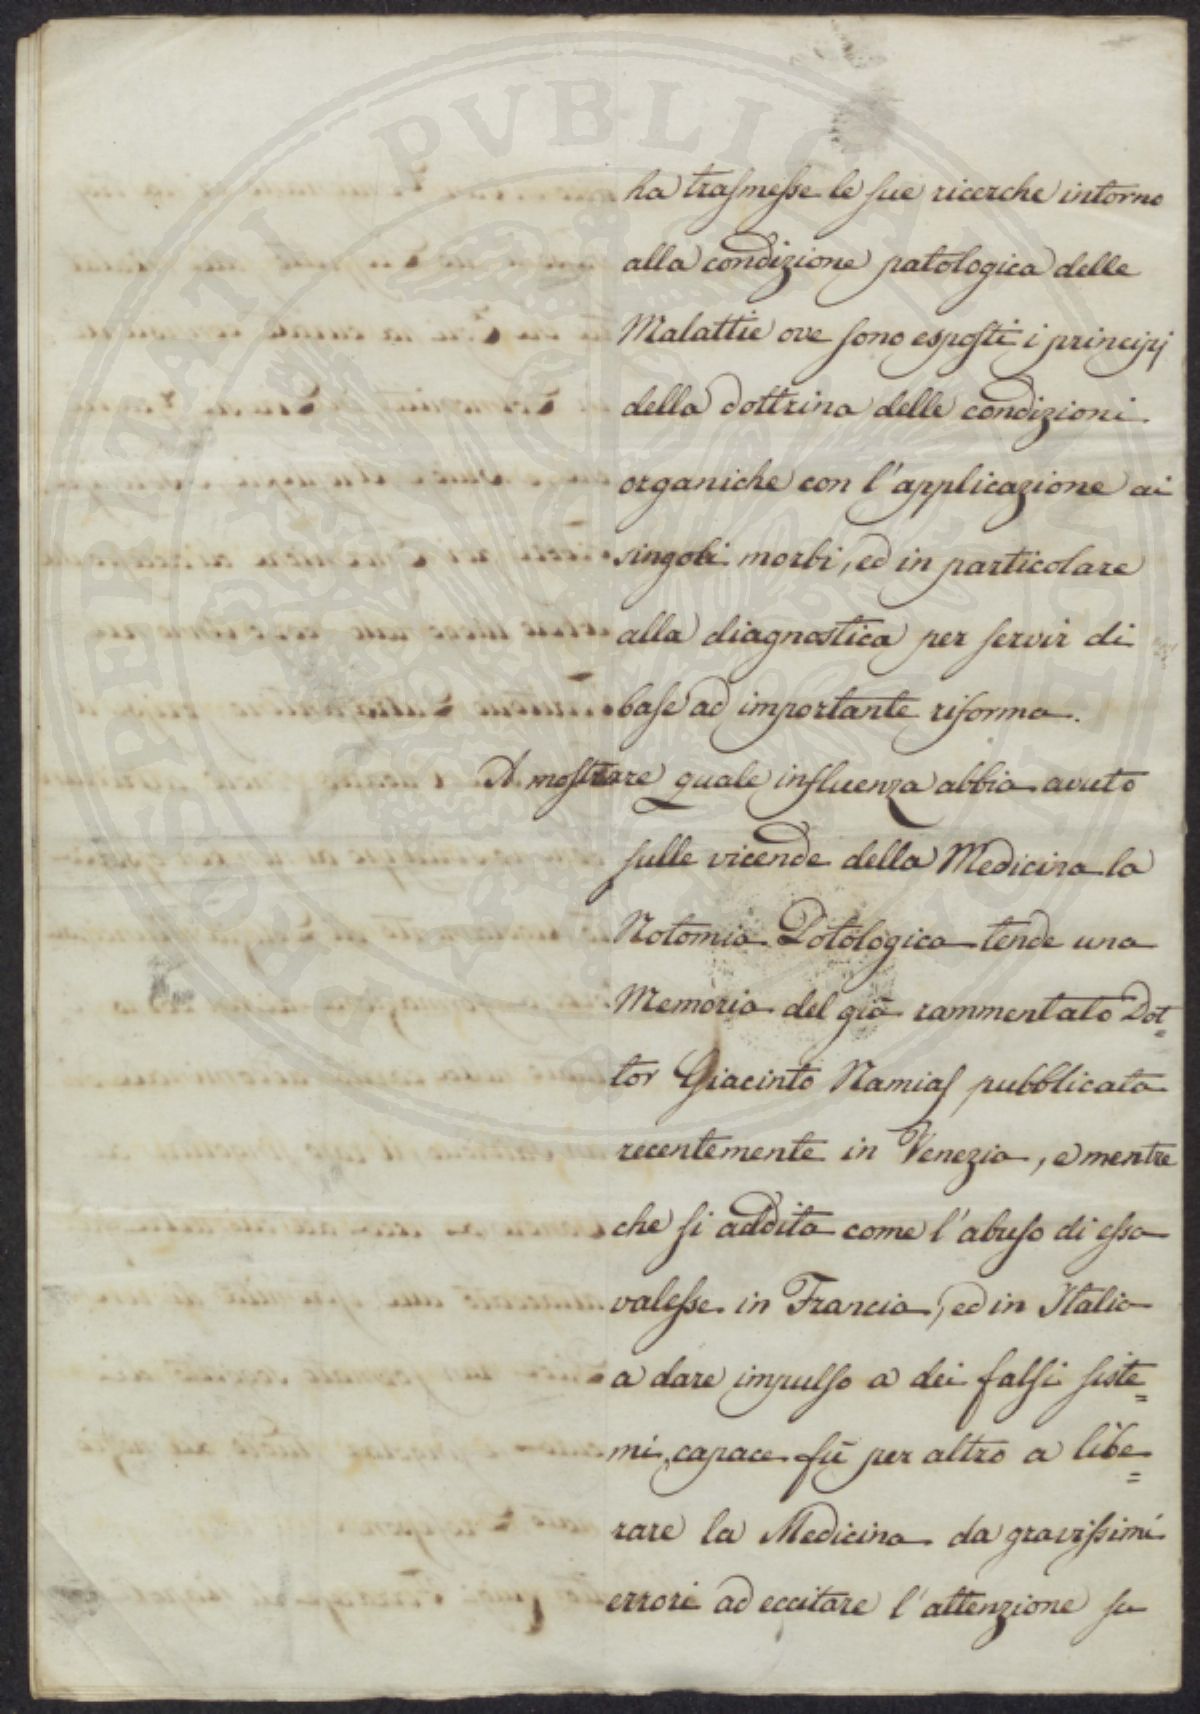 ha trasmesse le sue ricerche intorno
alla condizione patologica delle
Malattie ove sono esposti i principj
della dottrina delle condizioni
organiche con l'applicazione ai
singoli morbi, ed in particolare
alla diagnostica per servir di
base ad importante riforma.
A mostrare quale influenza abbia avuto
sulle vicende della Medicina la
Notomia Patologica tende una
Memoria del già rammentato Dot=
tor Giacinto Namias pubblicata
recentemente in Venezia, e mentre
che si addita come l'abuso di essa
valesse in Francia, ed in Italia
a dare impulso a dei falsi siste=
mi, capace fù per altro a libe=
rare la Medicina da gravissimi
errori ad eccitare l'attenzione su